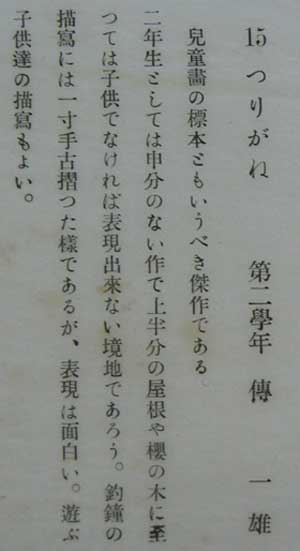 15 つりがね 第二學年 傳 一雄
兒童畫の標本ともいうべき傑作である。
二年生としては申分のない作で上半分の屋根や櫻の木に至
つては子供でなければ表現出來ない境地であろう。釣鐘の
描寫には一寸手古摺つた樣であるが、表現は面白い。遊ぶ
子供達の描寫もよい。